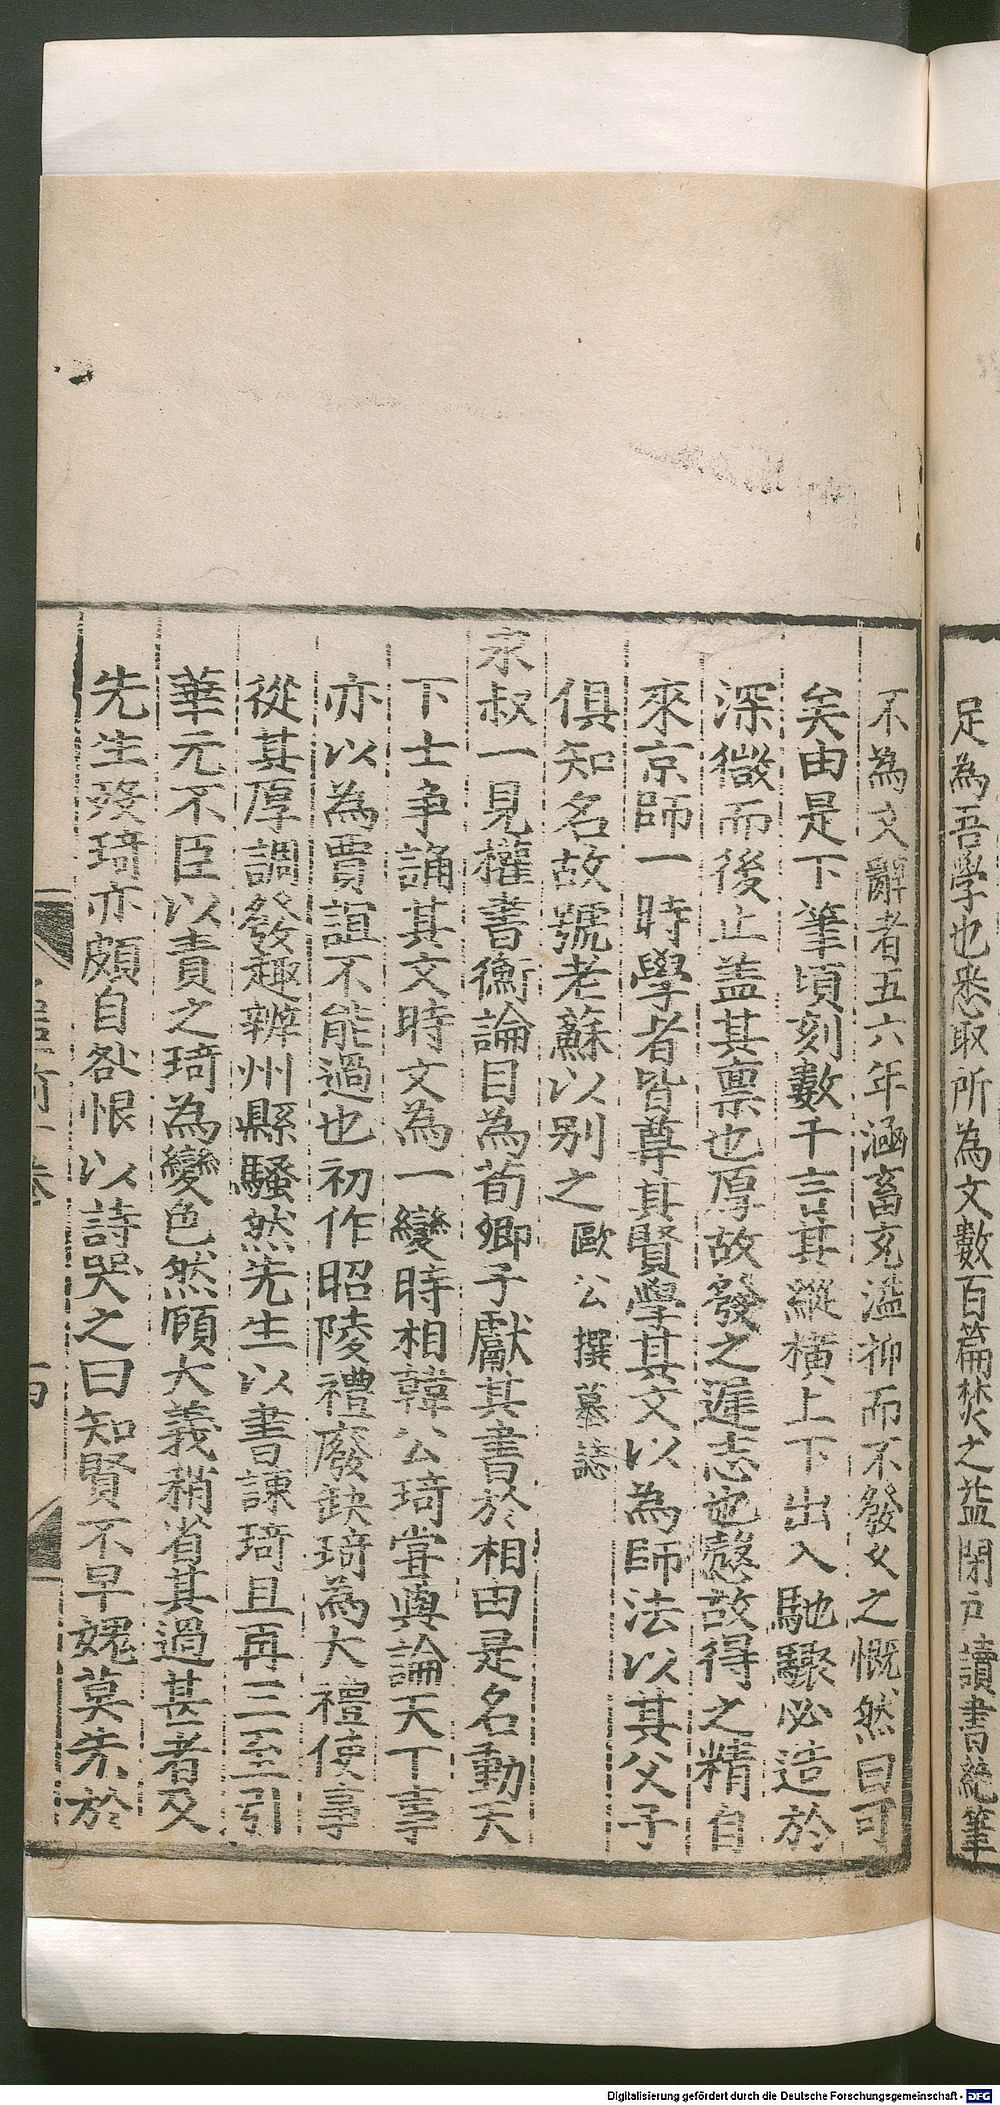 足為吾學也悉取所為文數百篇焚之益閉戸讀書絶筆
不為文辭者五六年涵畜充溢抑而不發久之慨然曰可
矣由是下筆頃刻數千言其縱橫上下出入馳驟必造於
深微而後止盖其禀也厚故發之遲志也慤故得之精自
來京師一時學者皆尊其賢學其文以為師法以其父子
俱知名故號老蘇以别之歐公撰墓誌
永叔一見權書衡論目為荀卿子獻其書於相由是名動天
下士争誦其文時文為一變時相韓公琦甞與論天下事
亦以為賈誼不能過也初作昭陵禮廢缺琦為大禮使事
從其厚調發趣辦州縣騷然先生以書諫琦且再三至引
華元不臣以責之琦為變色然顧大義稍省其過甚者及
先生殁琦亦頗自咎恨以詩哭之曰知賢不早媿莫先於
Digitalisierung gefördert durch die Deutsche Forschungsgemeinschaft - DFG